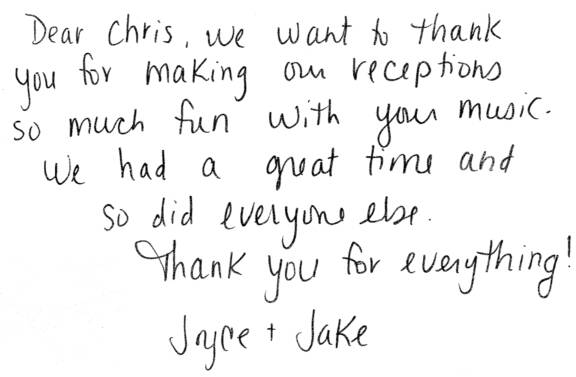 Dear Chris, we want to thank
you for making our receptions
so much fun with your music.
We had a great time and
so did everyone else.
Thank you for everything!
Joyce + Jake